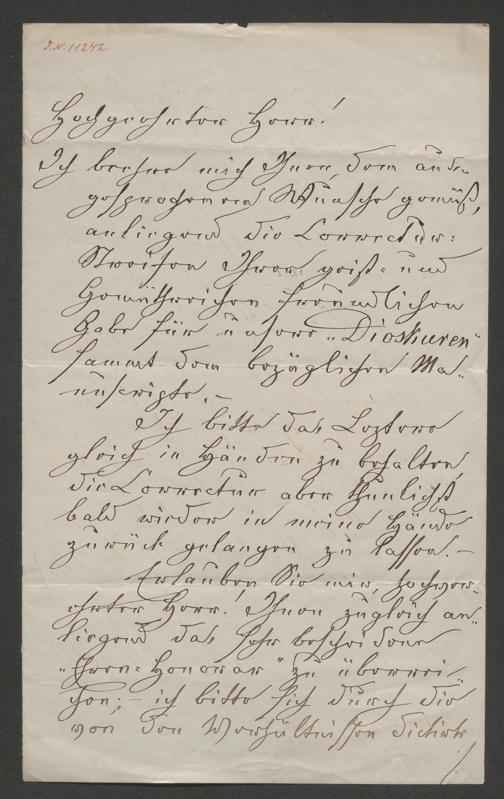 J.N. 11242
Hochgeehrter Herr!
Ich beehre mich Ihnen, dem aus-
gesprochenen Wunsche gemäß,
anliegend die Correctur-
Streifen Ihrer geist- und
Gemüthreichen freundlichen
Gabe für unsere „Dioskuren"
sammt dem bezüglichen Ma-
nuscripte. –
Ich bitte das Leztere
gleich in Händen zu behalten,
die Correctur aber thunlichst
bald wieder in meine Hände
zurück gelangen zu lassen. –
Erlauben Sie mir, hochver-
ehrter Herr! Ihnen zugleich an-
liegend das sehr bescheidene
„Ehren-Honorar" zu überrei-
chen; – ich bitte sich durch die
von den Verhältnissen dictirte